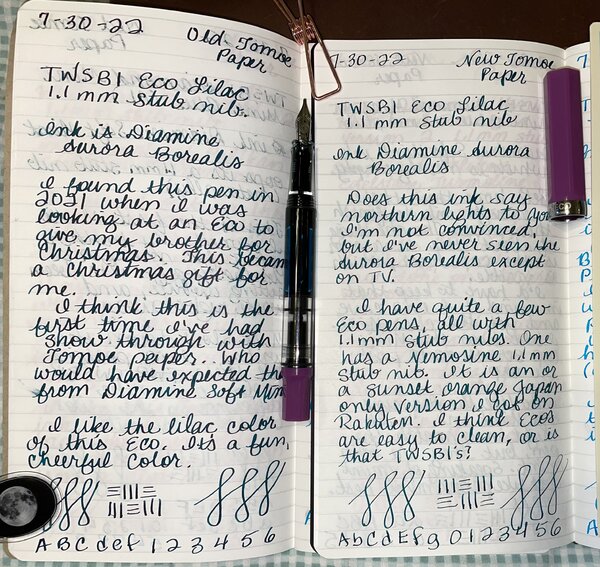 7-30-22
Old Tomoe
Paper
TWSBI Eco Lilac
1.1 mm Stub nib.
Ink is Diamine
Aurora Borealis
I found this pen in
2021 when I was
looking at an Eco to
give my brother for
Christmas. This becam
a Christmas gift for
me.
I think this is the
first time I've had
show through with
Tomoe paper. Who
would have expected th
from Diamine Soft Mint
I like the lilac color
of this Eco. Its a fun,
cheerful color.
A B C d e f 1 2 3 4 5 6
7-30-22
New Tomoe
Paper
TWSBI Eco Lilac
1.1 mm Stub nib
Ink Diamine Aurora
Borealis
Does this ink say
northern lights to you
I'm not convinced,
but I've never seen the
Aurora Borealis except
on TV.
I have quite a few
Eco pens, all with
1.1mm Stub nibs. One
has a Nemosine 1.1mm
Stub nib. It is an or
a sunset orange Japan
only version I got on
Rakuten. I think Ecos
are easy to clean, or is
that TWSBI's?
A b C d E f g 0 1 2 3 4 5 6